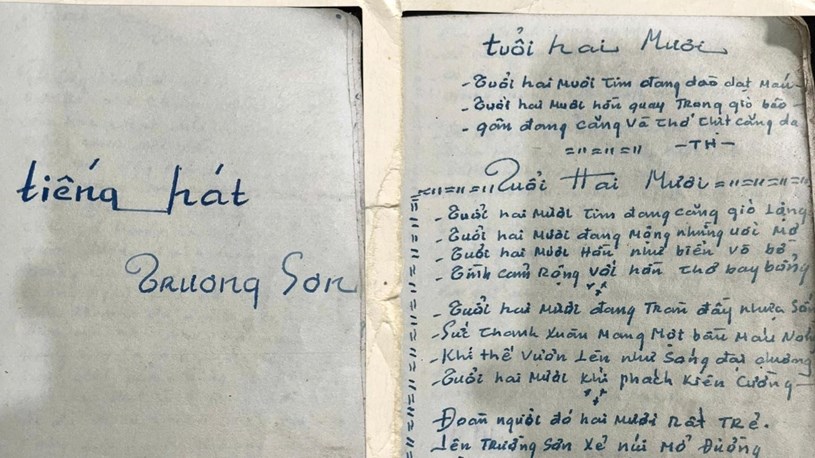 tiếng hát
Trương Sơn
tuổi hai Mươi
- Tuổi hai Mươi Tim đang dào dạt Máu -
- Tuổi hai Mươi hồn quay Trong gió bão -
- gân đang căng Và Thớ Thịt căng da
=''=''=''='' - TH -
=''=''='' Tuổi Hai Mươi =''=''=''=''
- Tuổi hai Mươi Tim đang căng gió lộng
- Tuổi hai Mươi đang Mộng những ươi Mơ
- Tuổi hai Mươi Hồn như biển Vỗ bờ
- Tình cảm Rộng Với hồn Thơ bay bổng
- Tuổi hai Mươi đang Tràn đầy nhựa Sốn
- Sức Thanh Xuân Mang Một bầu Máu Nón
- Khí thế Vươn Lên như Sóng đại dương
- Tuổi hai Mươi Khí phách Kiên Cường -
Đoàn người đó hai Mươi Rất TRẺ.
Lên TRường Sơn Xẻ núi Mở Đường